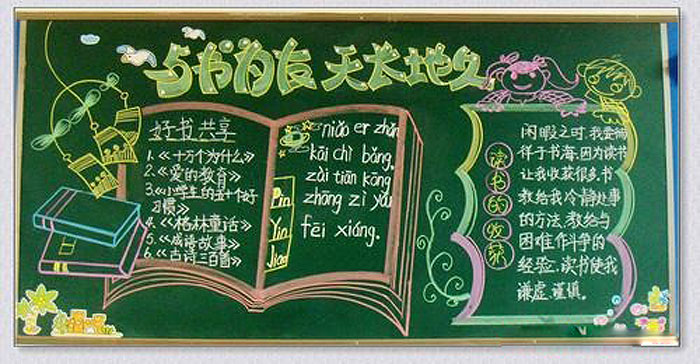 与书为友 天长地久
好书共享
1.《十万个为什么》
2.《爱的教育》
3.《小学生的五十个好
习惯》
4.《格林童话》
5.《成语故事》
6.《古诗三百首》
Pin
Yin
niǎo er zhǎn
kāi chì bǎng,
zài tiān kōng
zhōng zì yóu
fēi xiáng.
读书的收获
闲暇之时,我会徜
徉于书海,因为读书
让我收获很多,书
教给我冷静处事
的方法,教给与
困难作科学的
经验,读书使我
谦虚,谨慎。